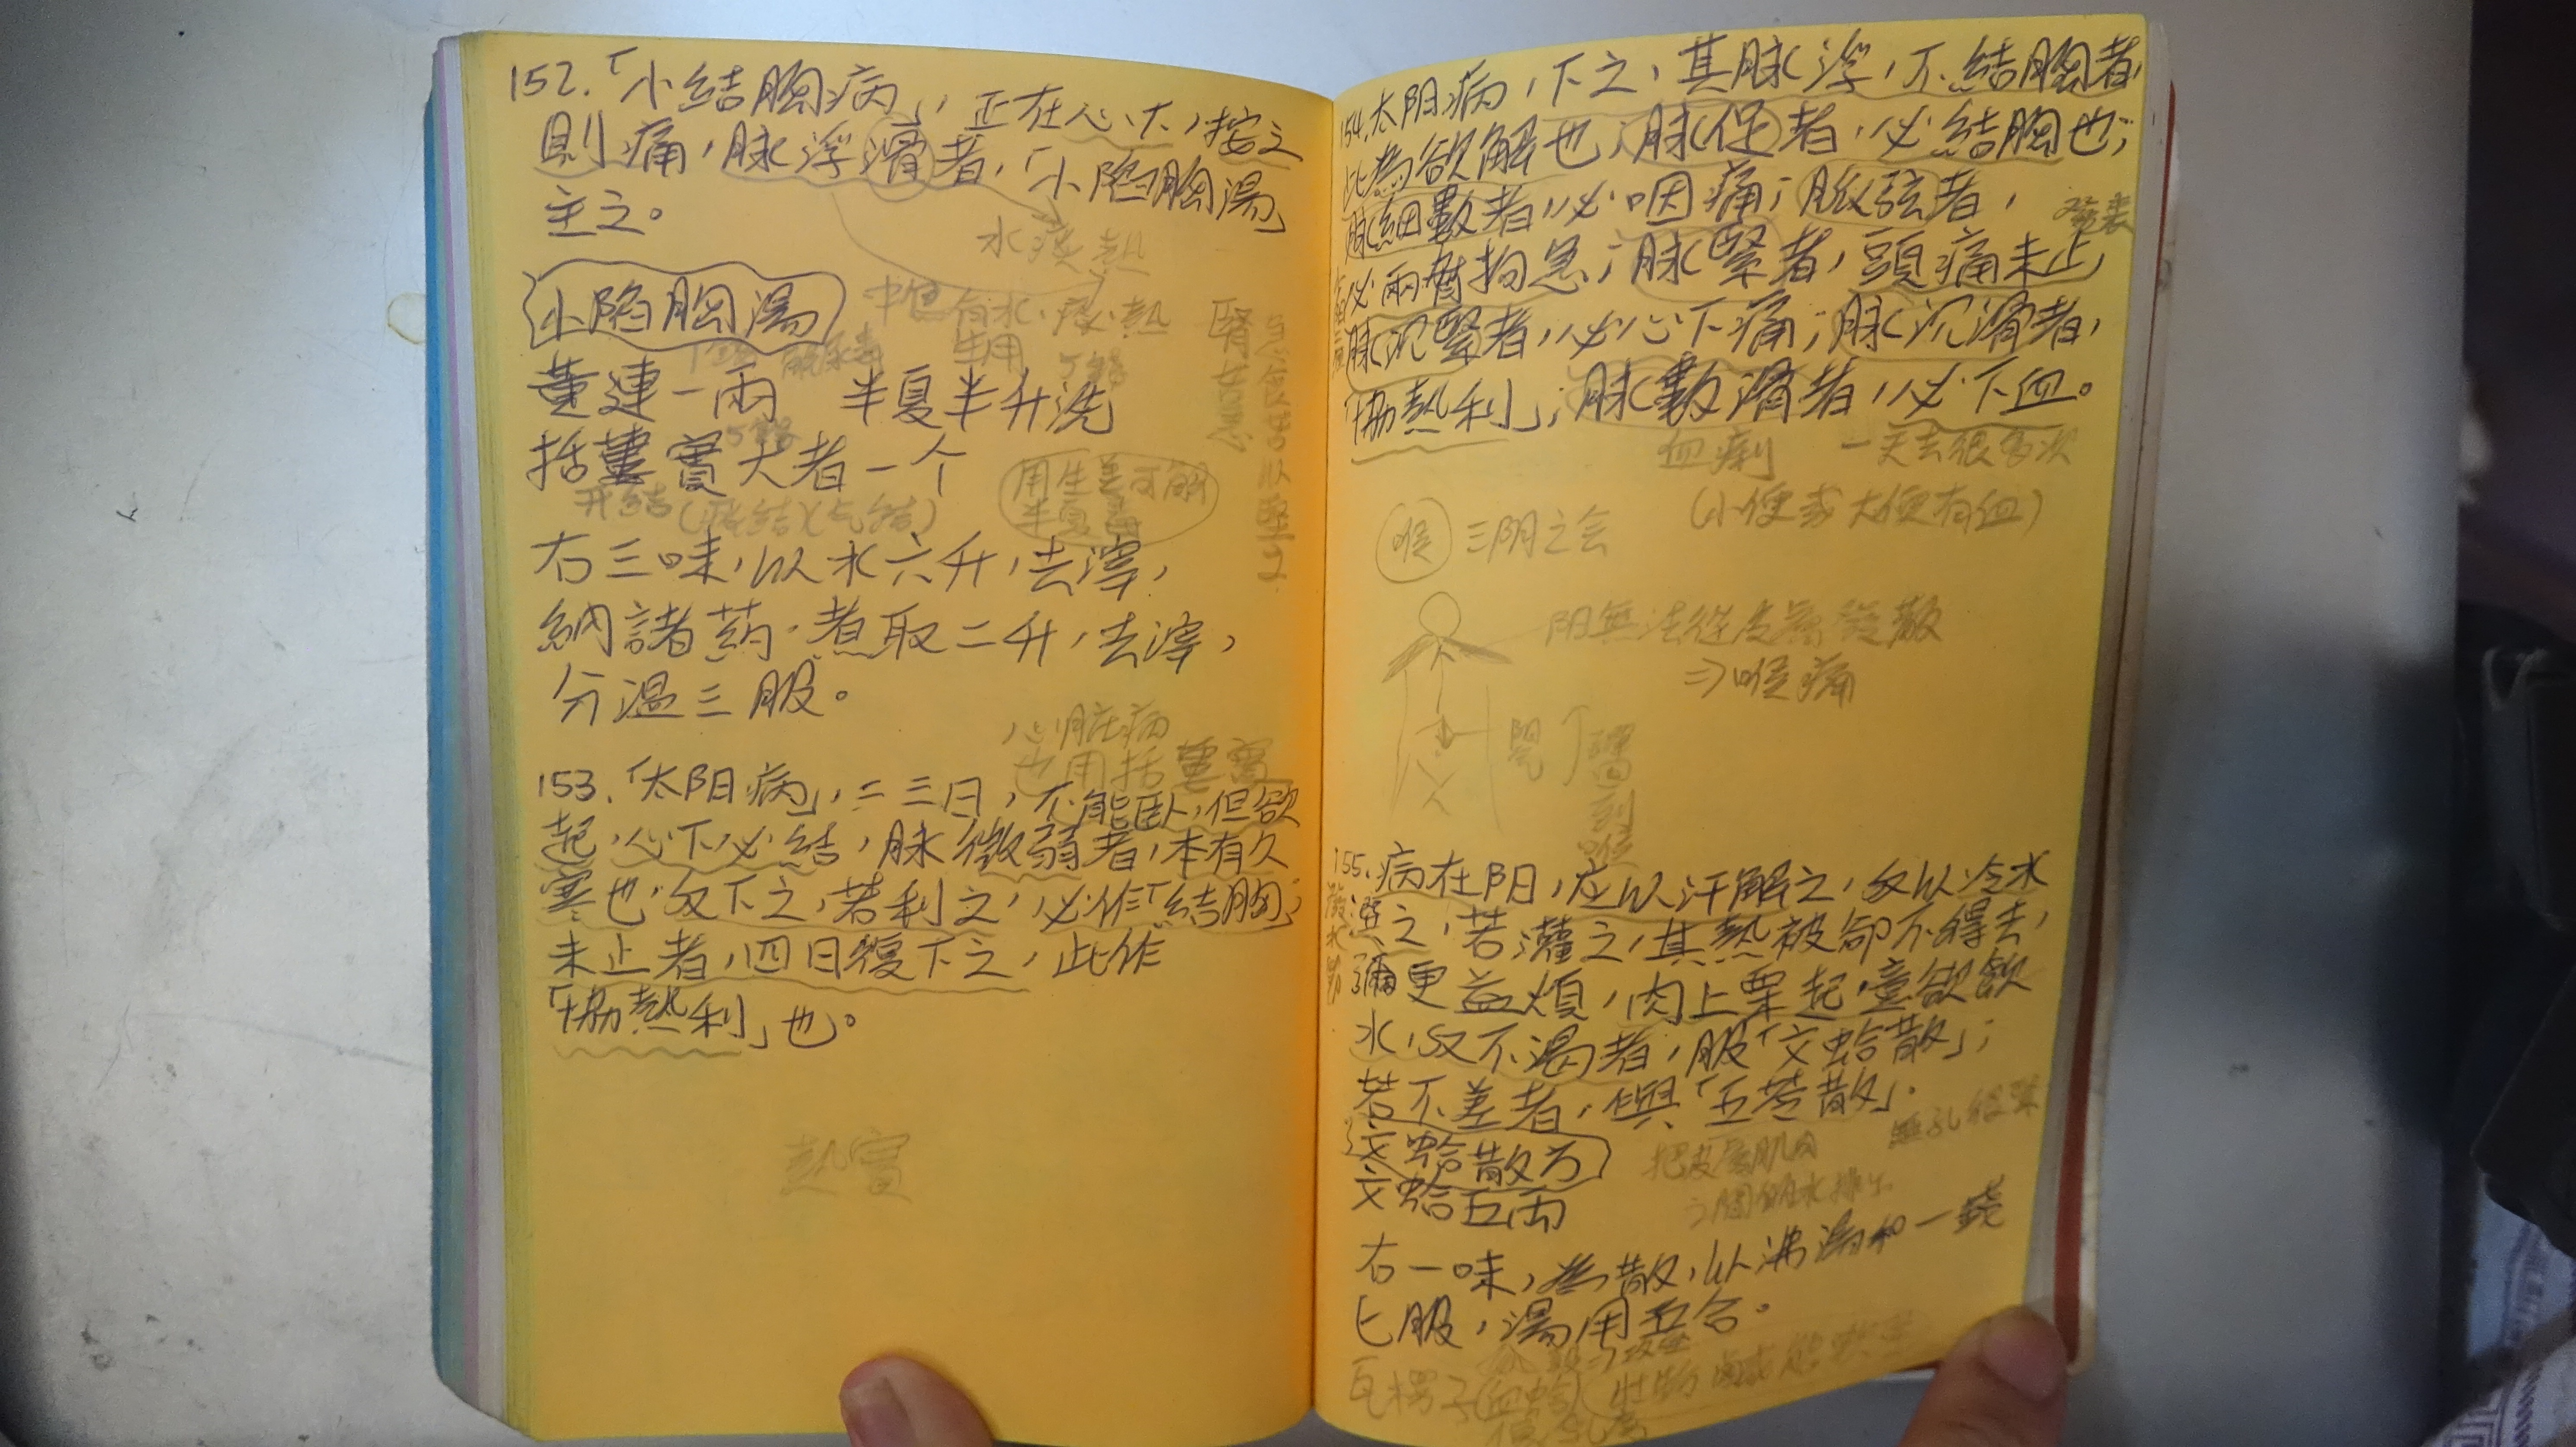 152.「小結胸病」，正在心下，按之
則痛，脉浮滑者，「小陷胸湯」
主之。
水痰熱
小陷胸湯
水·痰·熱
生用
黄連一兩 半夏半升洗
括蔞實大者一个
開結
用生姜可解
半夏毒
右三味，以水六升，去滓，
納諸药·煮取二升，去滓，
分温三服。
心脏病
也用括蔞實
153.「太阳病」，二三日，不能臥，但欲
起，心下必結，脉微弱者，本有久
寒也，反下之，若利之，必作「結胸」；
未止者，四日復下之，此作
「協熱利」也。
熱實
154.太阳病，下之，其脉浮，不結胸者，
此為欲解也；脉促者，必結胸也；
脉細數者，必咽痛；脈弦者，
必兩脅拘急；脉緊者，頭痛未止；
脉沉緊者，必心下痛；脉沉滑者，
「協熱利」；脉數滑者，必下血。
血痢 一天去很多次
(小便或大便有血)
喉 三阴之会
阴無法從皮膚發散
⇒喉痛
155.病在阳，应以汗解之，反以冷水
潠之，若灌之，其熱被卻不得去，
彌更益煩，肉上栗起，意欲飲
水，反不渴者，服「文蛤散」；
若不差者，與「五苓散」.
文蛤散方
把皮膚肌肉
文蛤五兩
右一味，為散，以沸湯和一錢
匕服，湯用五合。
瓦楞子(血蛤)